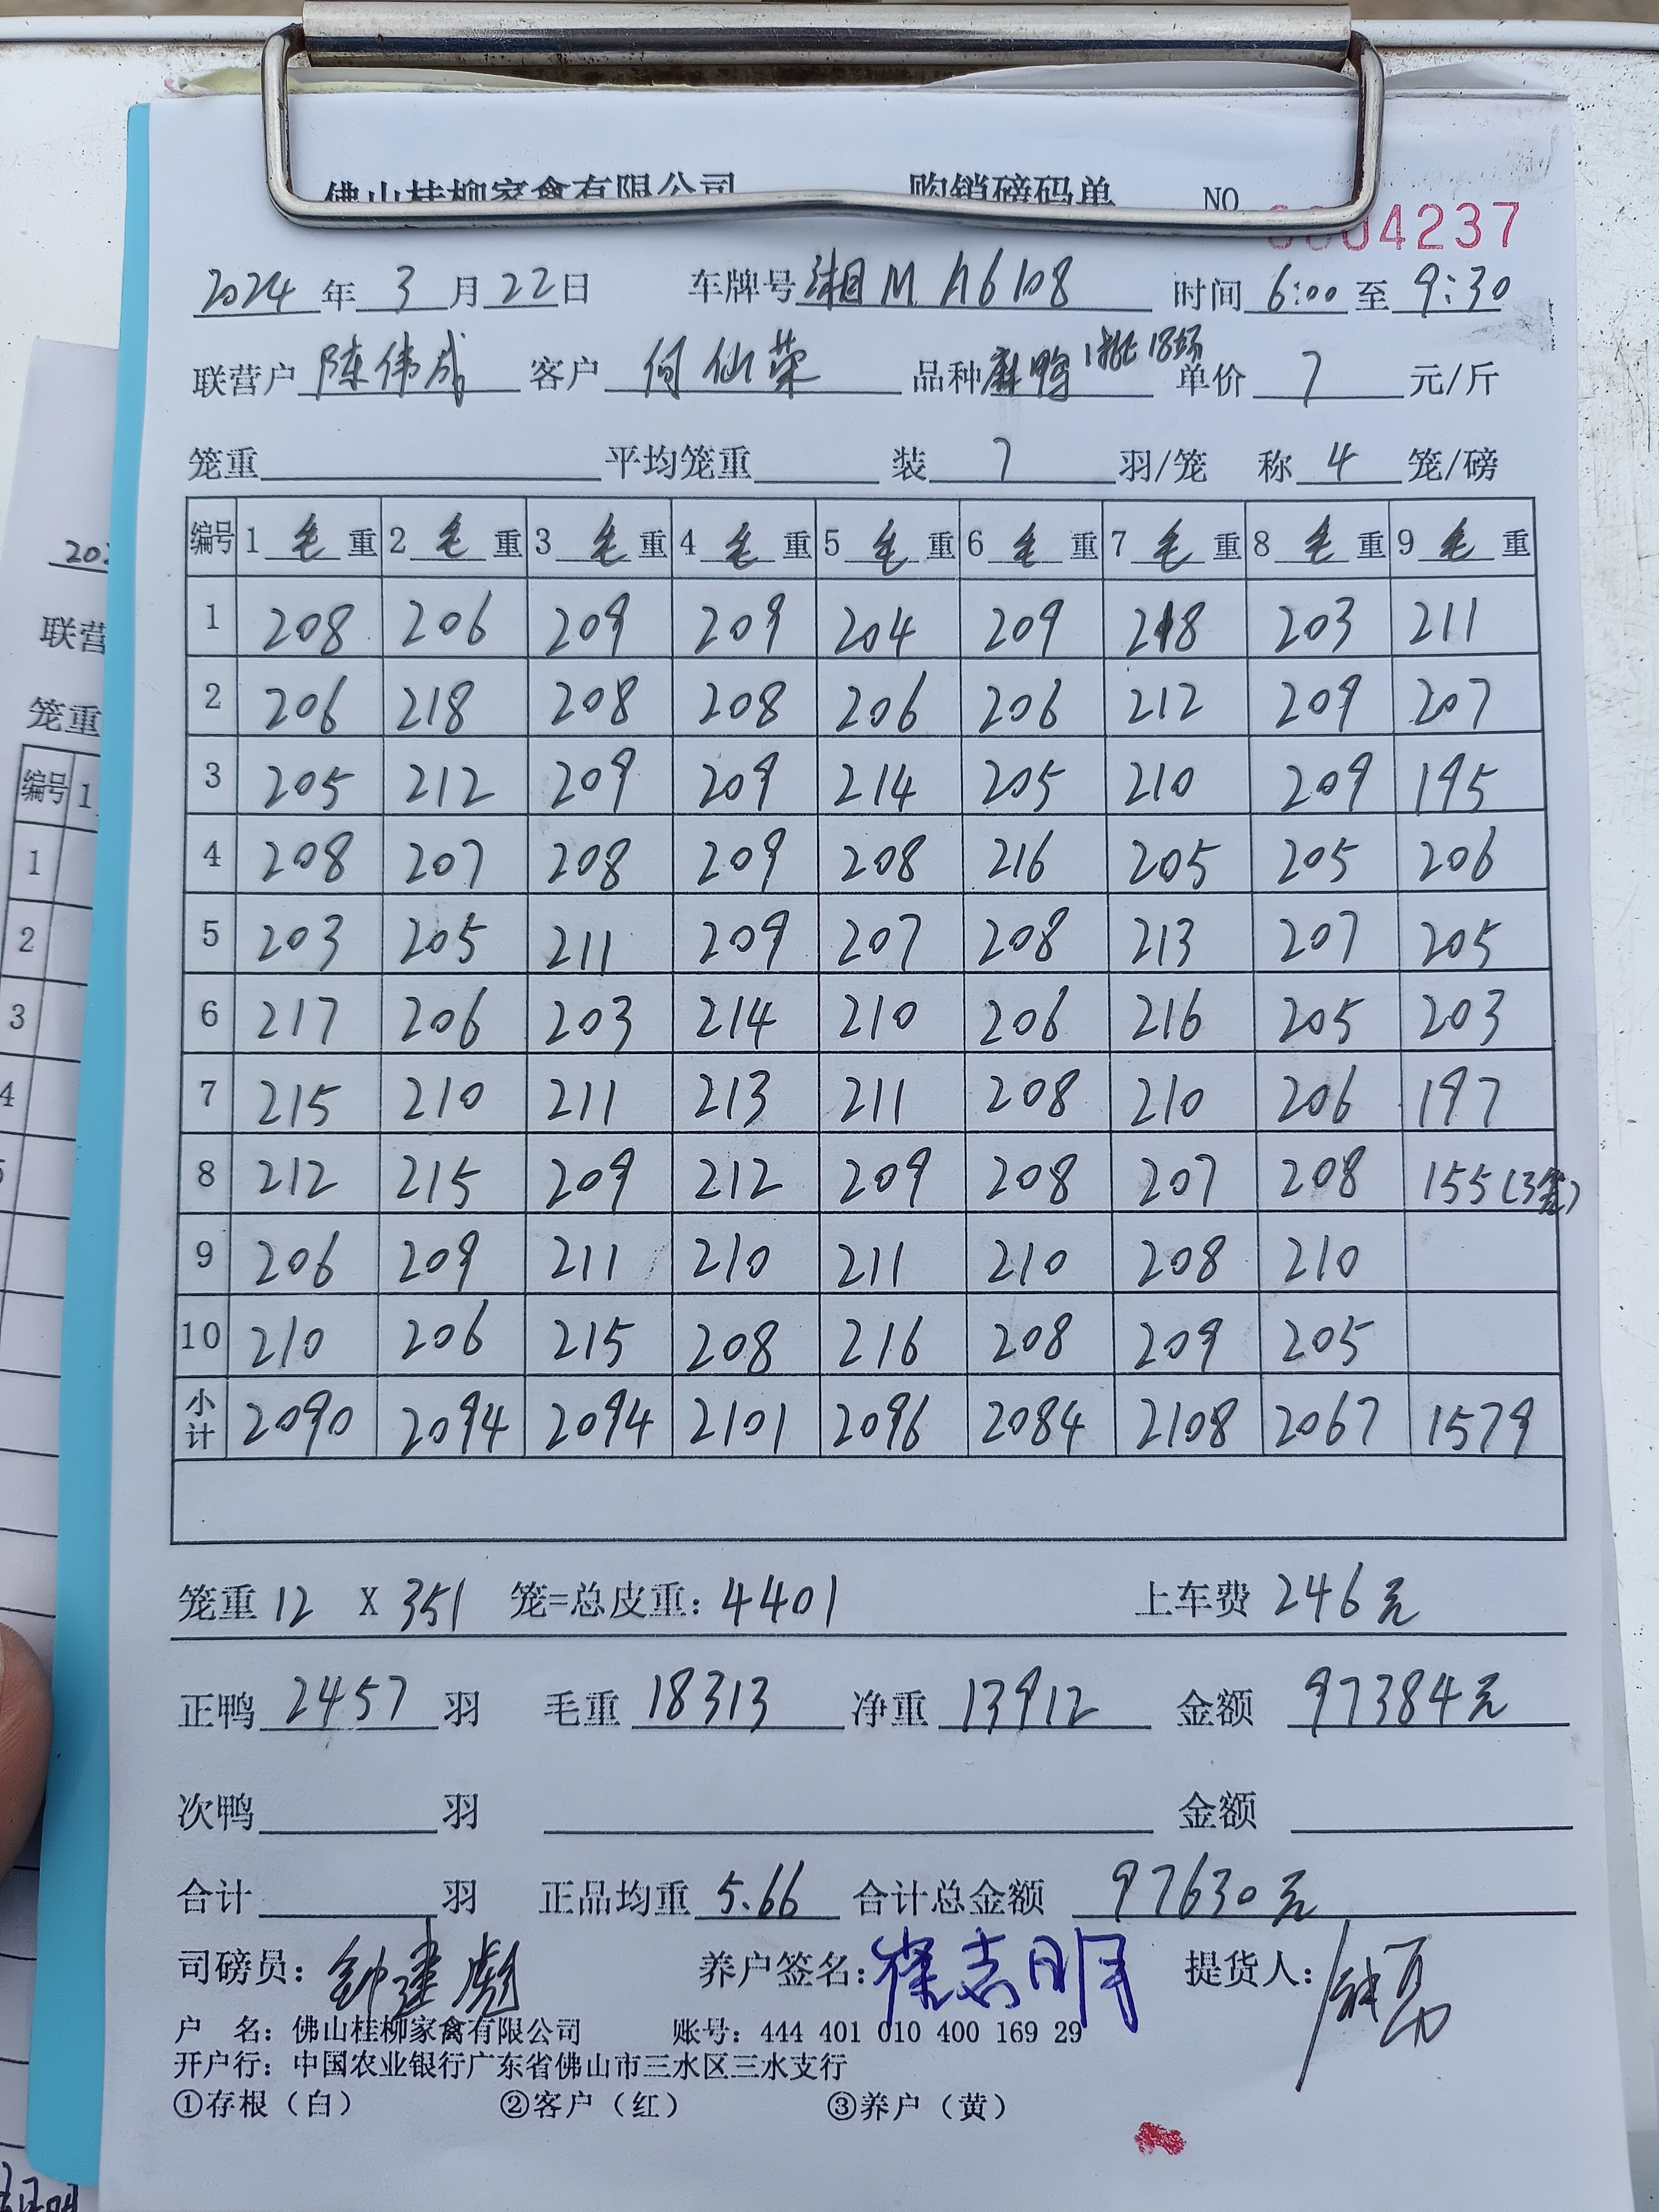 佛山桂柳家禽有限公司 购销磅码单 NO 0004237
2024 年 3 月 22 日 车牌号 湘M A6108 时间 6:00 至 9:30
联营户 陈伟成 客户 何仙荣 品种 麻鸭 1批18场 单价 7 元/斤
笼重 平均笼重 装 7 羽/笼 称 4 笼/磅
编号 1 毛 重 2 毛 重 3 毛 重 4 毛 重 5 毛 重 6 毛 重 7 毛 重 8 毛 重 9 毛 重
1 208 206 209 209 204 209 218 203 211
2 206 218 208 208 206 206 212 209 207
3 205 212 209 209 214 205 210 209 195
4 208 207 208 209 208 216 205 205 206
5 203 205 211 209 207 208 213 207 205
6 217 206 203 214 210 206 216 205 203
7 215 210 211 213 211 208 210 206 197
8 212 215 209 212 209 208 207 208 155(3笼)
9 206 209 211 210 211 210 208 210
10 210 206 215 208 216 208 209 205
小计 2090 2094 2094 2101 2096 2084 2108 2067 1579
笼重 12 X 351 笼=总皮重: 4401 上车费 246元
正鸭 2457 羽 毛重 18313 净重 13912 金额 97384元
次鸭 羽 金额
合计 羽 正品均重 5.66 合计总金额 97630元
司磅员: 钟建彪 养户签名: 志明 提货人:
户 名: 佛山桂柳家禽有限公司 账号: 444 401 010 400 169 29
开户行: 中国农业银行广东省佛山市三水区三水支行
①存根（白） ②客户（红） ③养户（黄）
202
联营
笼重
编号 1
1
2
3
4
5